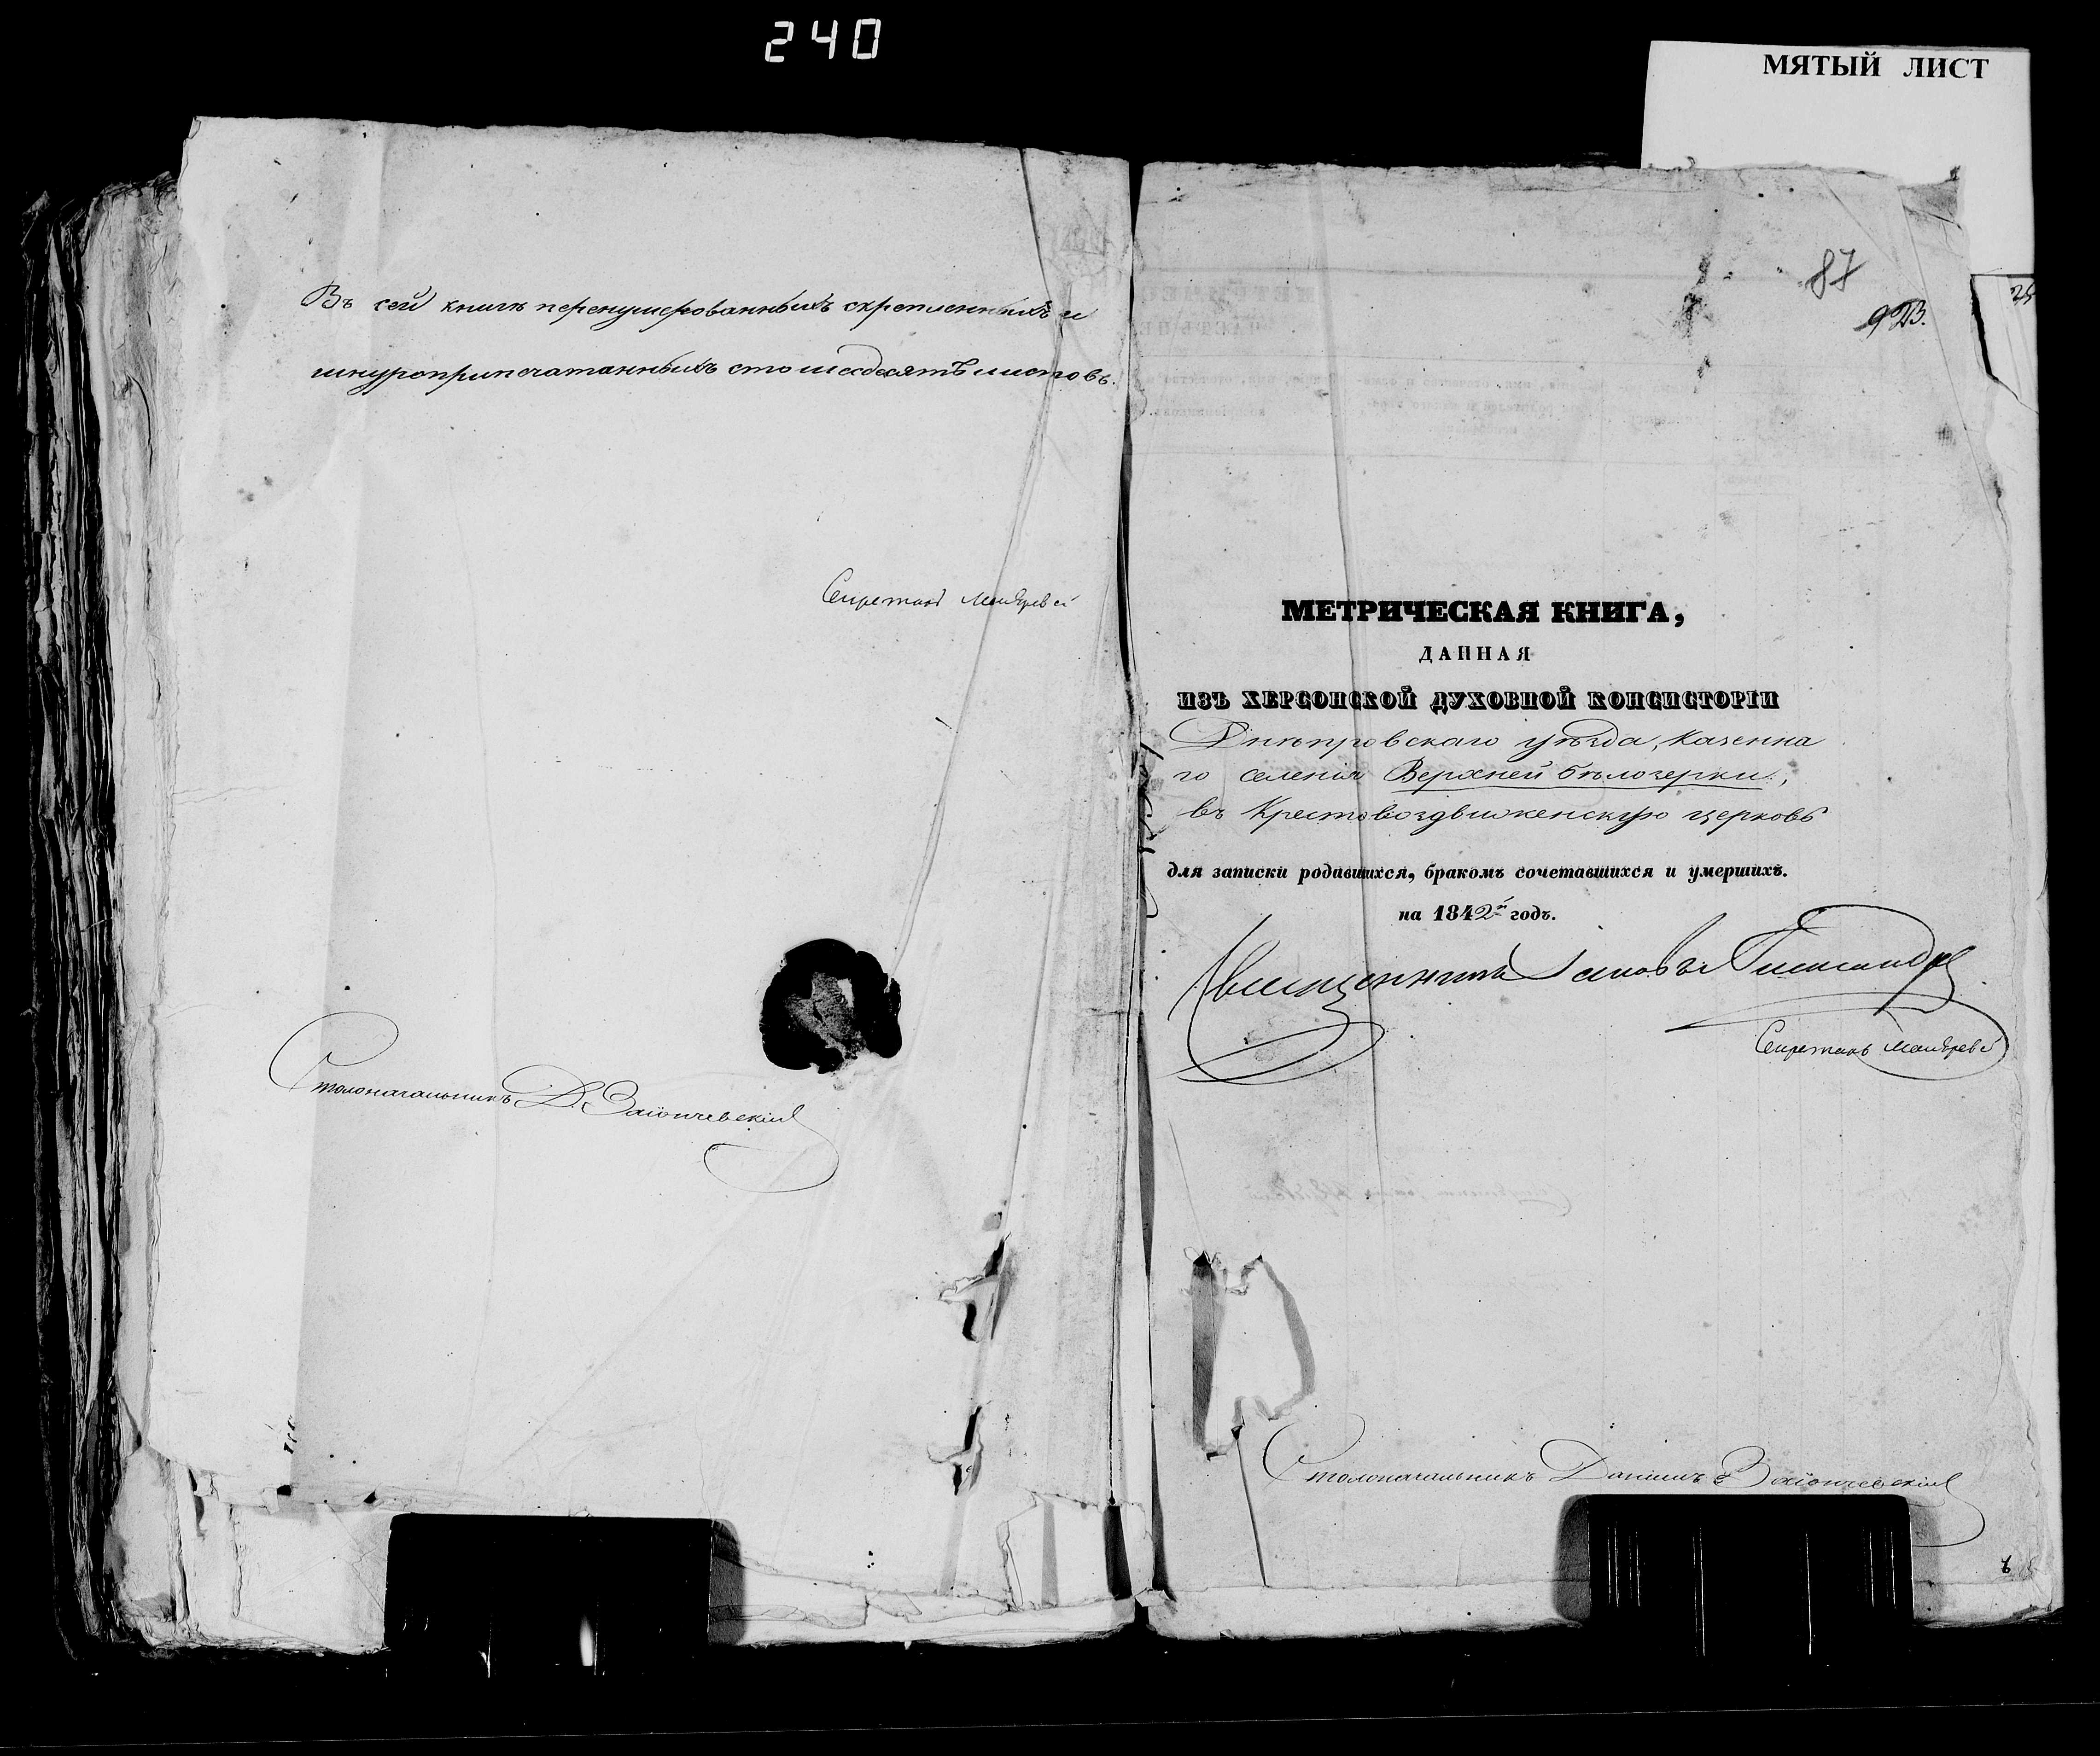 240
МЯТЫЙ ЛИСТ
Въ сей книгѣ перенумерованныхъ скрепленныхъ и
шнуроприпечатанныхъ сто шесдесятъ листовъ.
Секретарь
Столоначальникъ Д. Заіончевскій
87
92В.
25
МЕТРИЧЕСКАЯ КНИГА,
ДАННАЯ
ИЗЪ ХЕРСОНСКОЙ ДУХОВНОЙ КОНСИСТОРІИ
Днѣпровскаго уѣзда, казенна
го селенія Верхней бѣлозерки,
въ Крестовоздвиженскую церковь
для записки родившихся, бракомъ сочетавшихся и умершихъ.
на 1842й годъ.
Священникъ Іаковъ
Секретарь
Столоначальникъ Даніилъ Заіончевскій